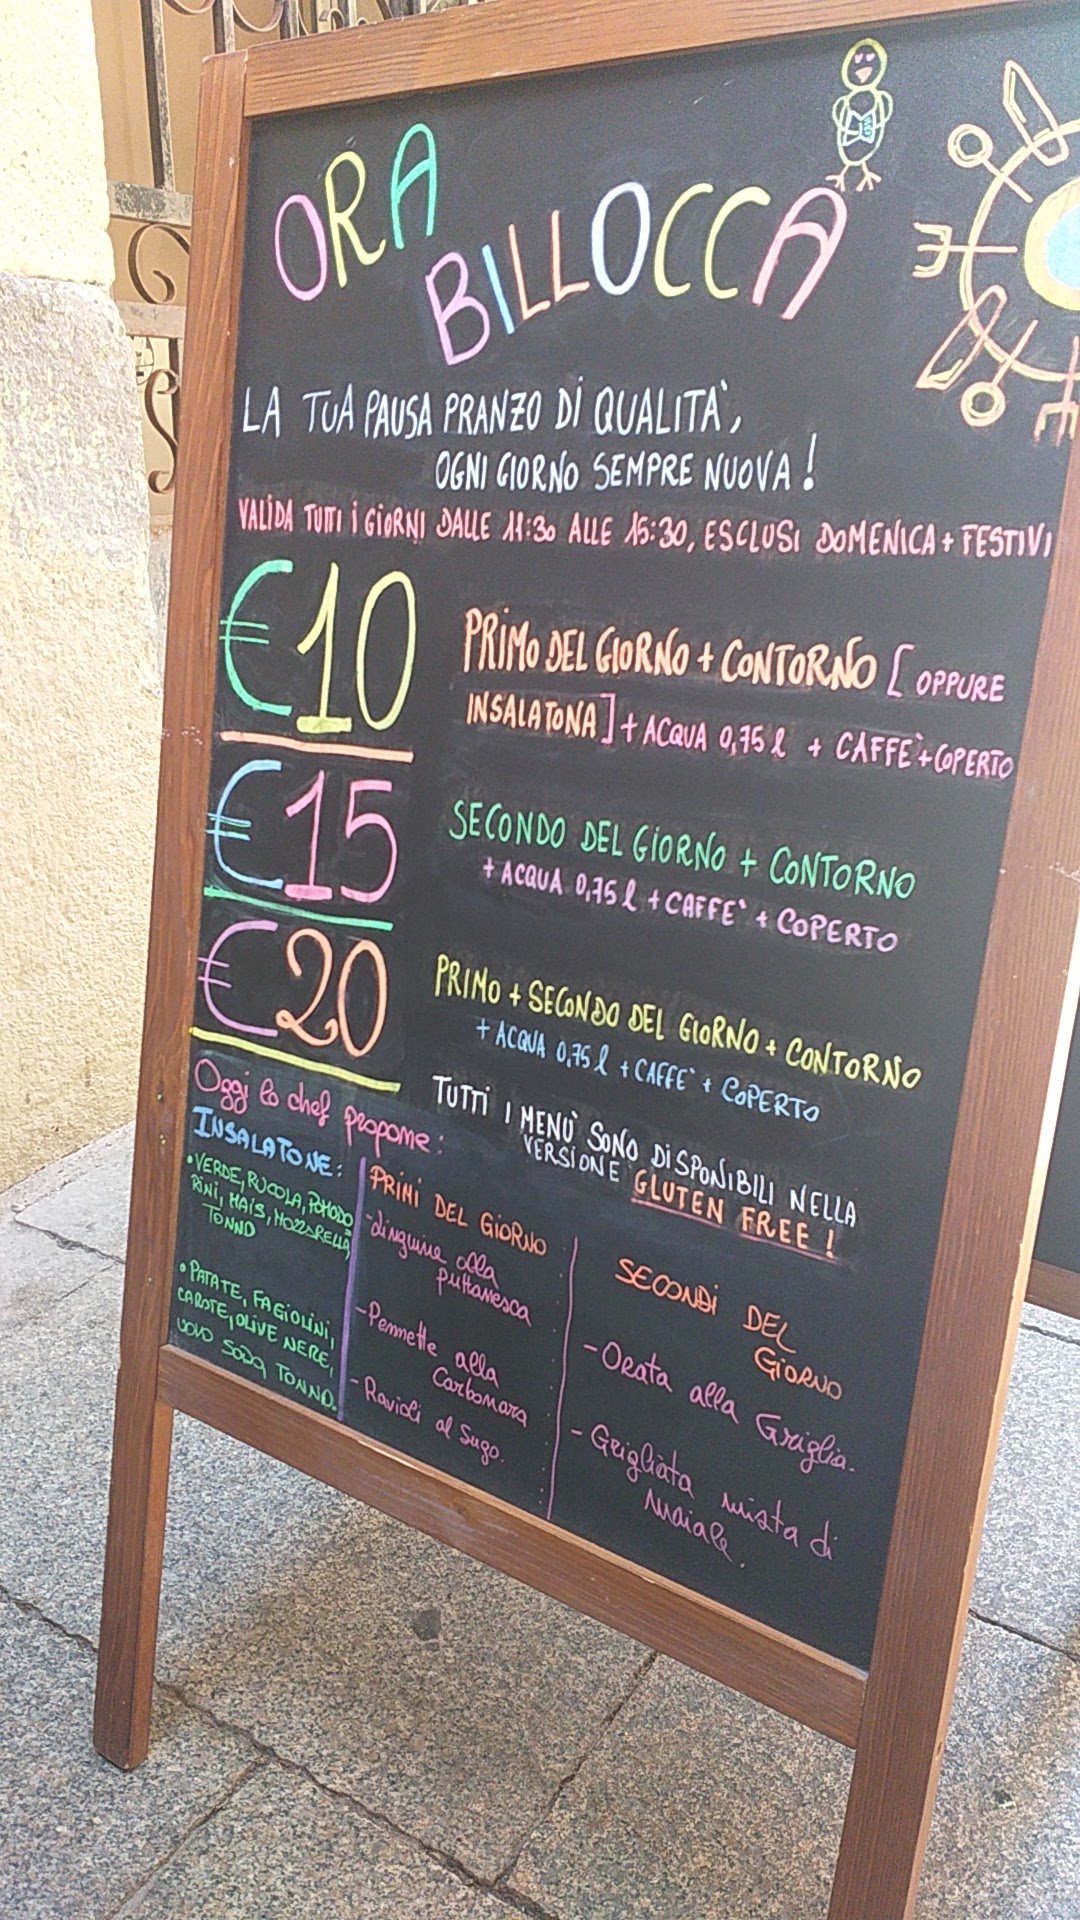 ORA
BILLOCCA
LA TUA PAUSA PRANZO DI QUALITA',
OGNI GIORNO SEMPRE NUOVA!
VALIDA TUTTI I GIORNI DALLE 11:30 ALLE 15:30, ESCLUSI DOMENICA + FESTIVI
€10
PRIMO DEL GIORNO + CONTORNO [OPPURE
INSALATONA] + ACQUA 0,75 l + CAFFE' + COPERTO
€15
SECONDO DEL GIORNO + CONTORNO
+ ACQUA 0,75 l + CAFFE' + COPERTO
€20
PRIMO + SECONDO DEL GIORNO + CONTORNO
+ ACQUA 0,75 l + CAFFE' + COPERTO
TUTTI I MENÙ SONO DISPONIBILI NELLA
VERSIONE GLUTEN FREE!
Oggi lo chef propone:
INSALATONE:
• VERDE, RUCOLA, POMODO
RINI, MAIS, MOZZARELLA
TONNO
• PATATE, FAGIOLINI,
CAROTE, OLIVE NERE,
UOVO SODO, TONNO.
PRIMI DEL GIORNO
- Linguine alla
puttanesca
- Pennette alla
Carbonara
- Ravioli al Sugo.
SECONDI DEL
GIORNO
- Orata alla Griglia.
- Grigliata mista di
maiale.